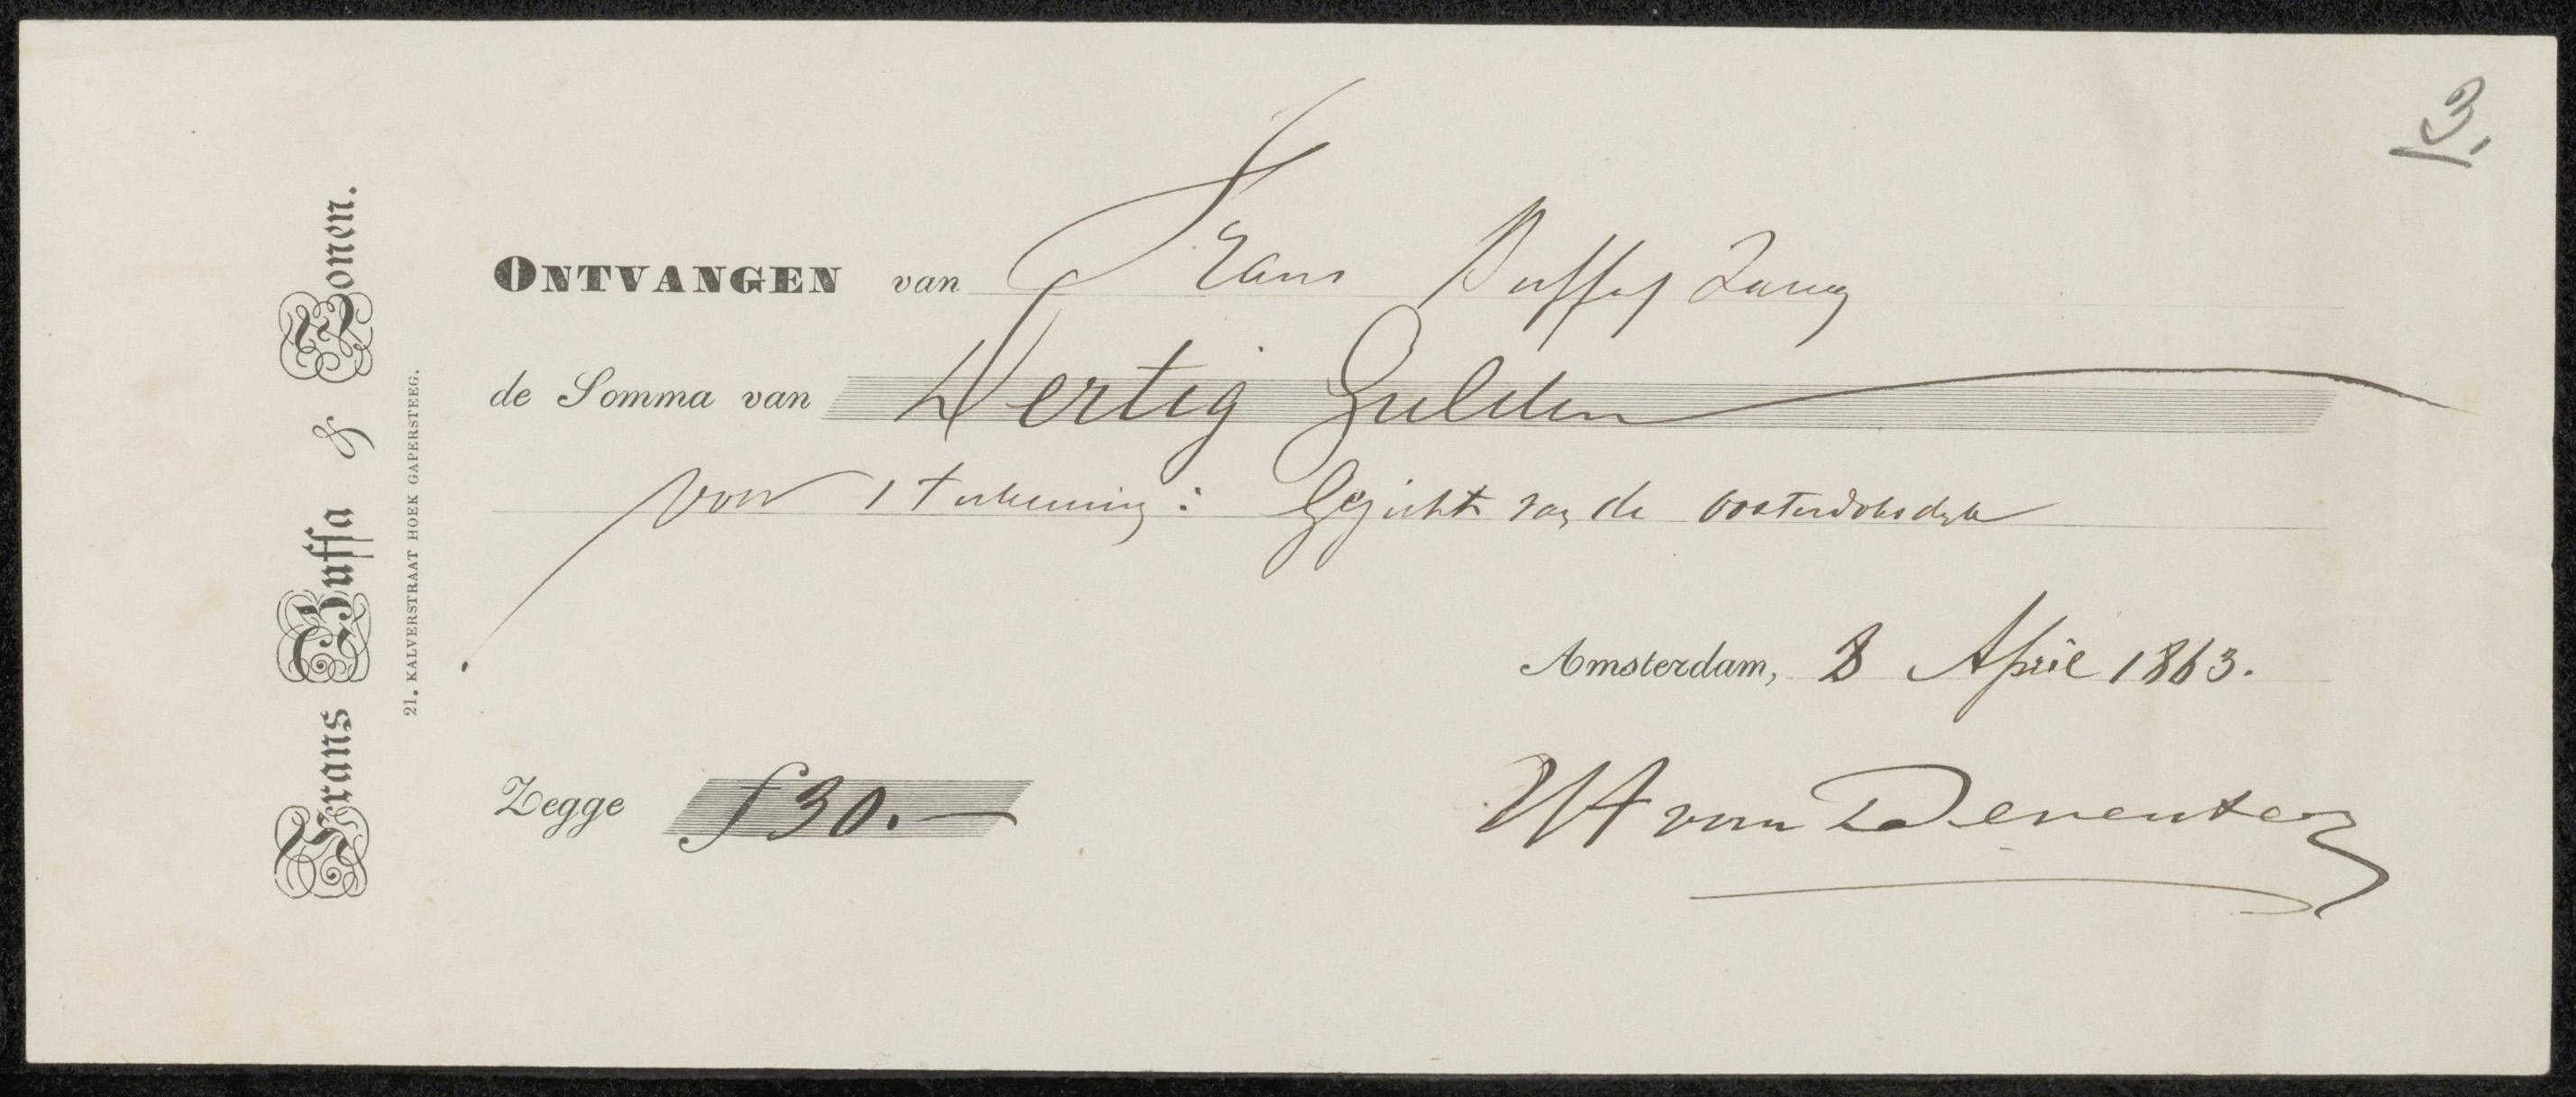 3.
Frans Buffa & Zonen.
21. KALVERSTRAAT HOEK GAPERSTEEG.
ONTVANGEN van Frans Buffa &
de Somma van Dertig Gulden
voor 1 teekening: Gezicht van de Oosterdoksdyk
Amsterdam, 8 April 1863.
Zegge f 30.—
WA van Deventer